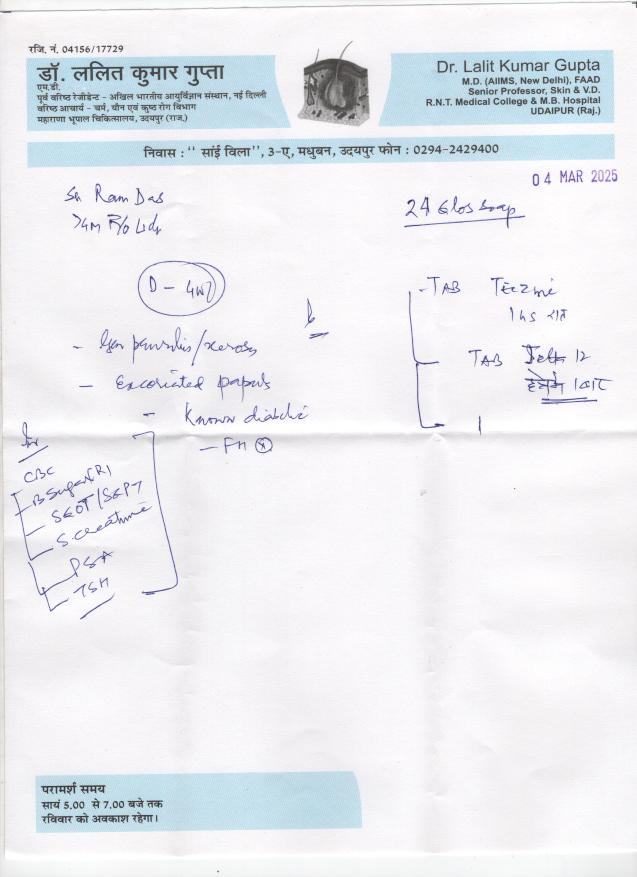 रजि. नं. 04156/17729
डॉ. ललित कुमार गुप्ता
एम.डी.
पूर्व वरिष्ठ रेजीडेन्ट - अखिल भारतीय आयुर्विज्ञान संस्थान, नई दिल्ली
वरिष्ठ आचार्य - चर्म, यौन एवं कुष्ठ रोग विभाग
महाराणा भूपाल चिकित्सालय, उदयपुर (राज.)
Dr. Lalit Kumar Gupta
M.D. (AIIMS, New Delhi), FAAD
Senior Professor, Skin & V.D.
R.N.T. Medical College & M.B. Hospital
UDAIPUR (Raj.)
निवास : '' सांई विला'', ३-ए, मधुबन, उदयपुर फोन : 0294-2429400
04 MAR 2025
Ram Das
74M R/o
24 Glos soap
D -
- Gen pruritis/xerosis
- Excoriated papules
- Known diabetic
- FH
CBC
B Sugar (R)
SGOT/SGPT
S. creatinine
PSA
TSH
- TAB Teczine
TAB 12
परामर्श समय
सायं 5.00 से 7.00 बजे तक
रविवार को अवकाश रहेगा।